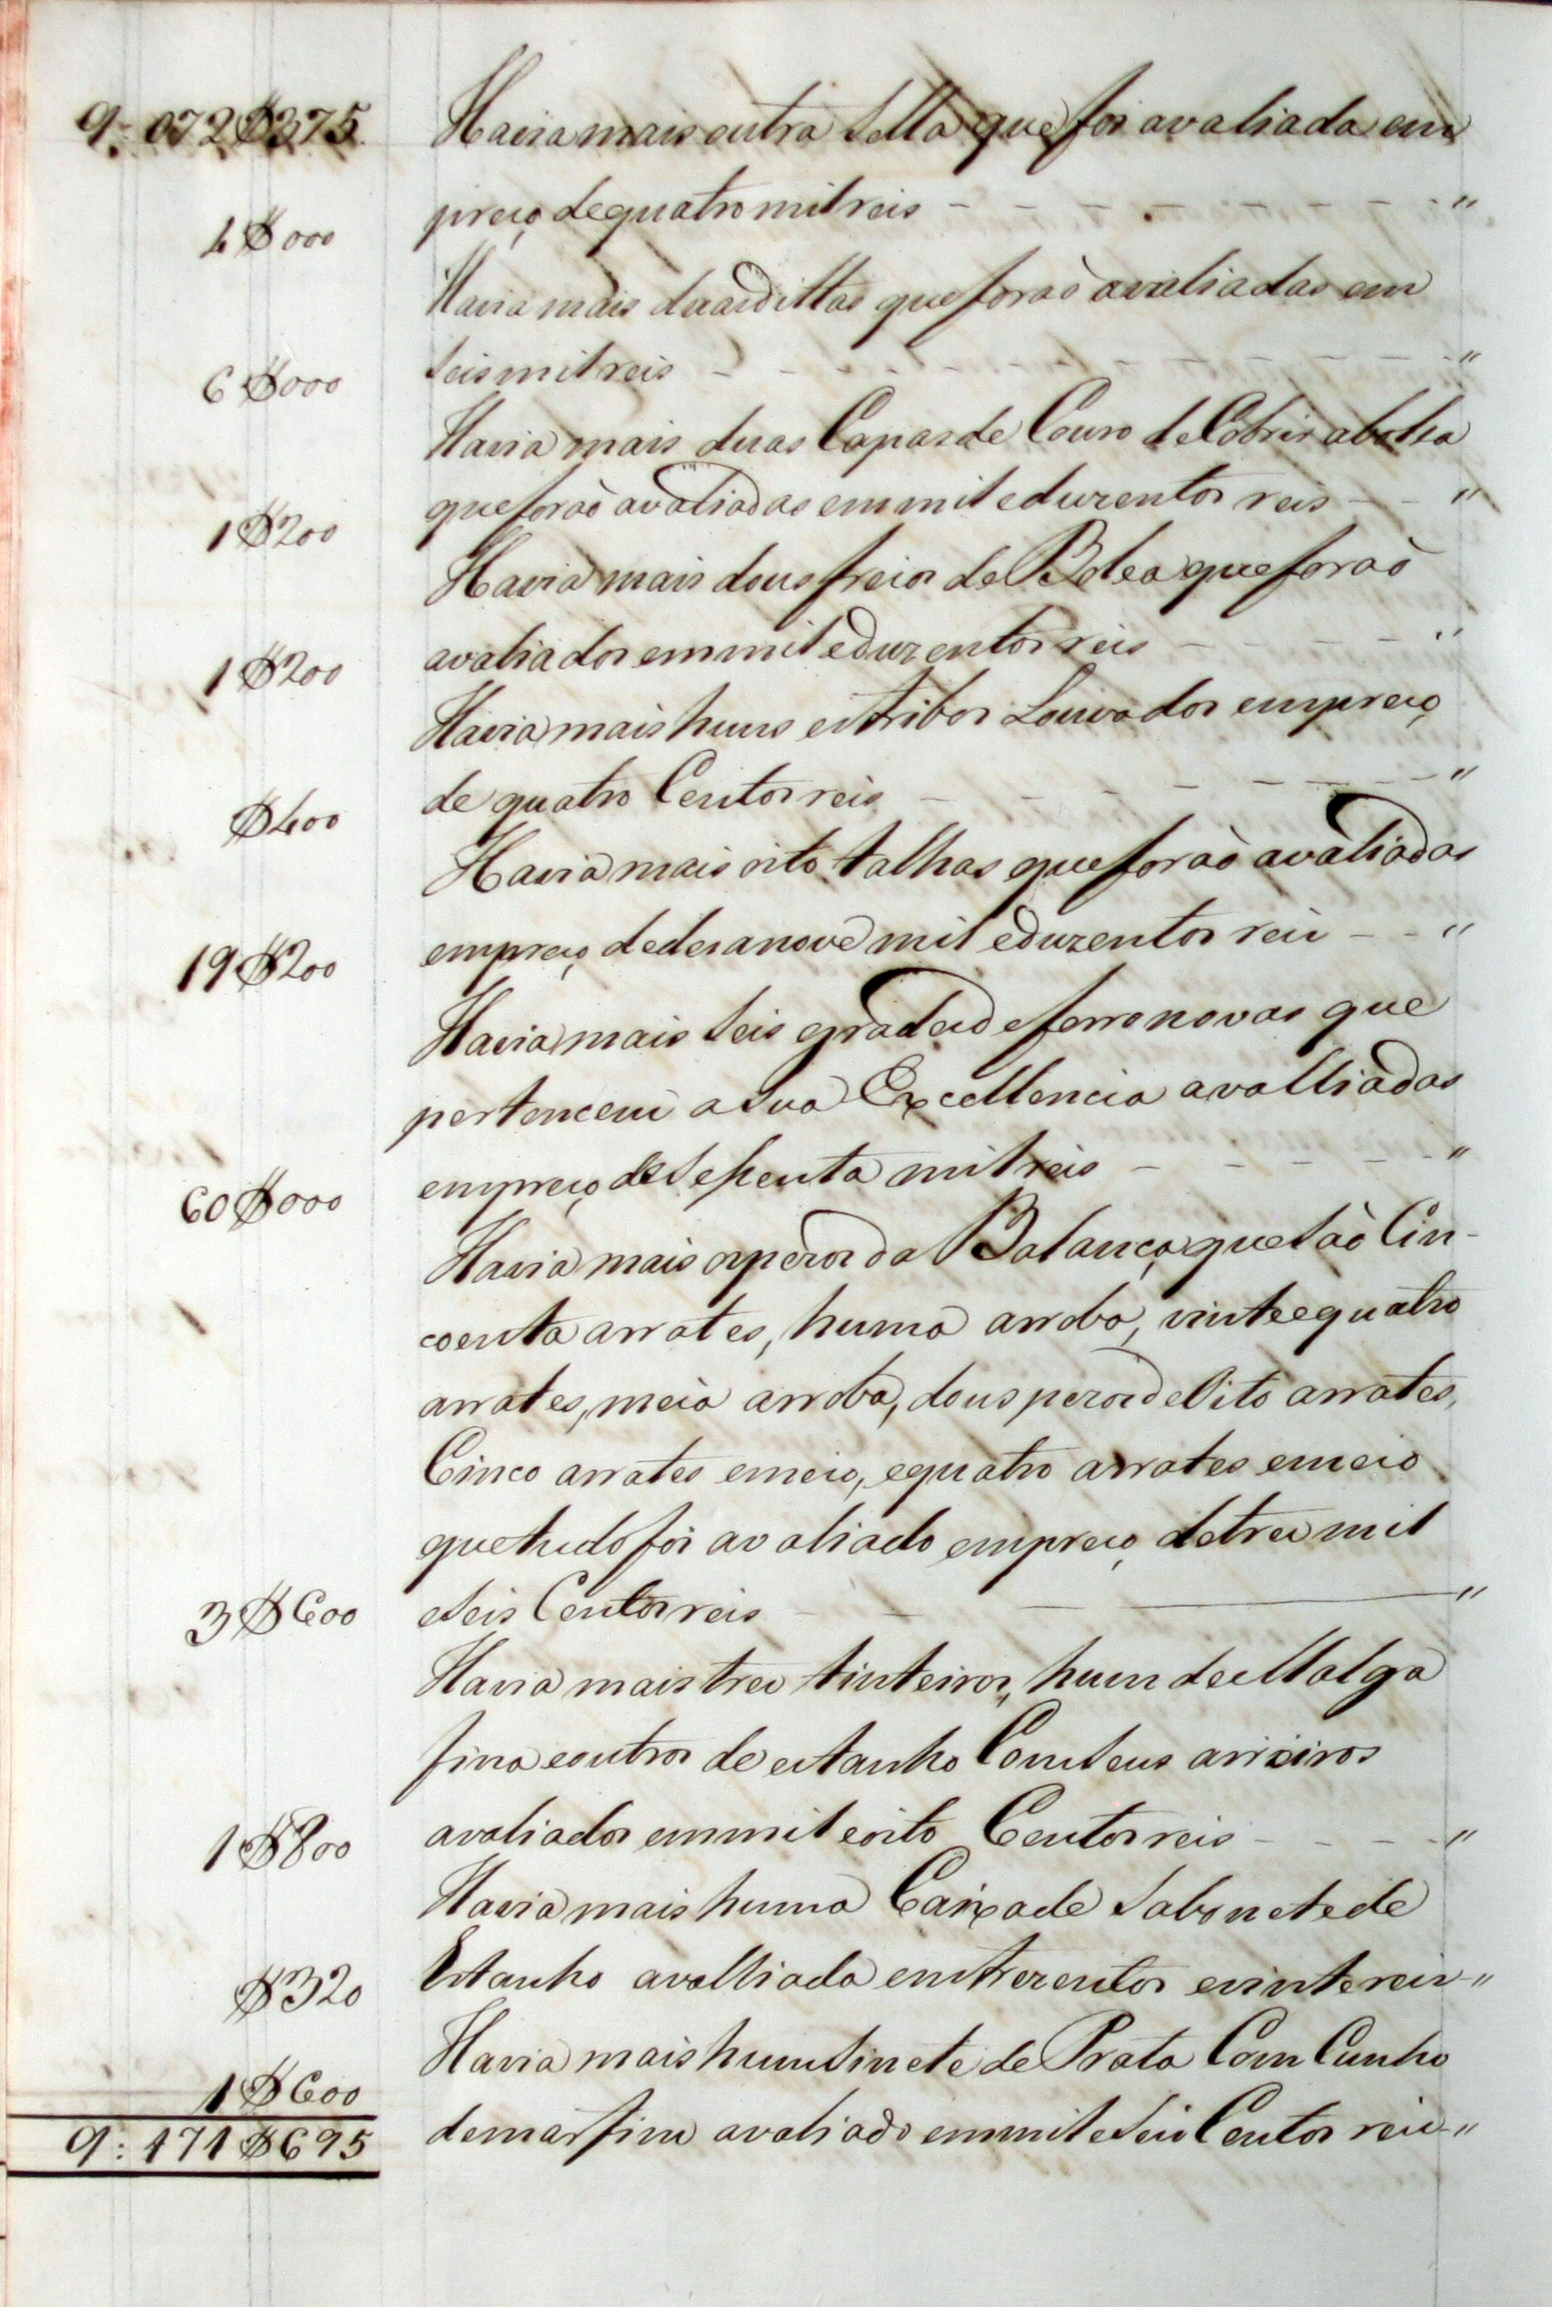 9:072$375 Havia mais outra Sella que foi avaliada em
preço de quatro mil reis - - - - - - - - - "
4$000
Havia mais duas dittas que foraõ avaliadas em
6$000 seis mil reis - - - - - - - - - - - "
Havia mais duas Capas de Couro de Cobrir a bolea
1$200 que foraõ avaliadas em mil e duzentos reis - - "
Havia mais dous freios de Bolea que foraõ
1$200 avaliados em mil e duzentos reis - - - - "
Havia mais huns estribos Louvados em preço
$400 de quatro Centos reis - - - - - - "
Havia mais oito talhas que foraõ avaliadas
19$200 em preço de desanove mil e duzentos reis - - "
Havia mais seis grades de ferro novas que
pertencem a Sua Excellencia avalliadas
60$000 em preço de secenta mil reis - - - - - "
Havia mais os pezos da Balança que saõ Cin-
coenta arrates, huma arroba, vinte e quatro
arrates, meia arroba, dous pezos de Oito arrates,
Cinco arrates e meio, e quatro arrates e meio
que tudo foi avaliado em preço de tres mil
3$600 e seis Centos reis - - - "
Havia mais tres tinteiros, hum de Malga
fina e outros de estanho Com seus arieiros
1$800 avaliados em mil e oito Centos reis - - - - "
Havia mais huma Caixa de Sabonete de
$320 Estanho avalliada em trezentos e vinte reis - "
Havia mais hum Sinete de Prata Com Cunho
1$600 de marfim avaliado em mil e seis Centos reis - "
9:171$695